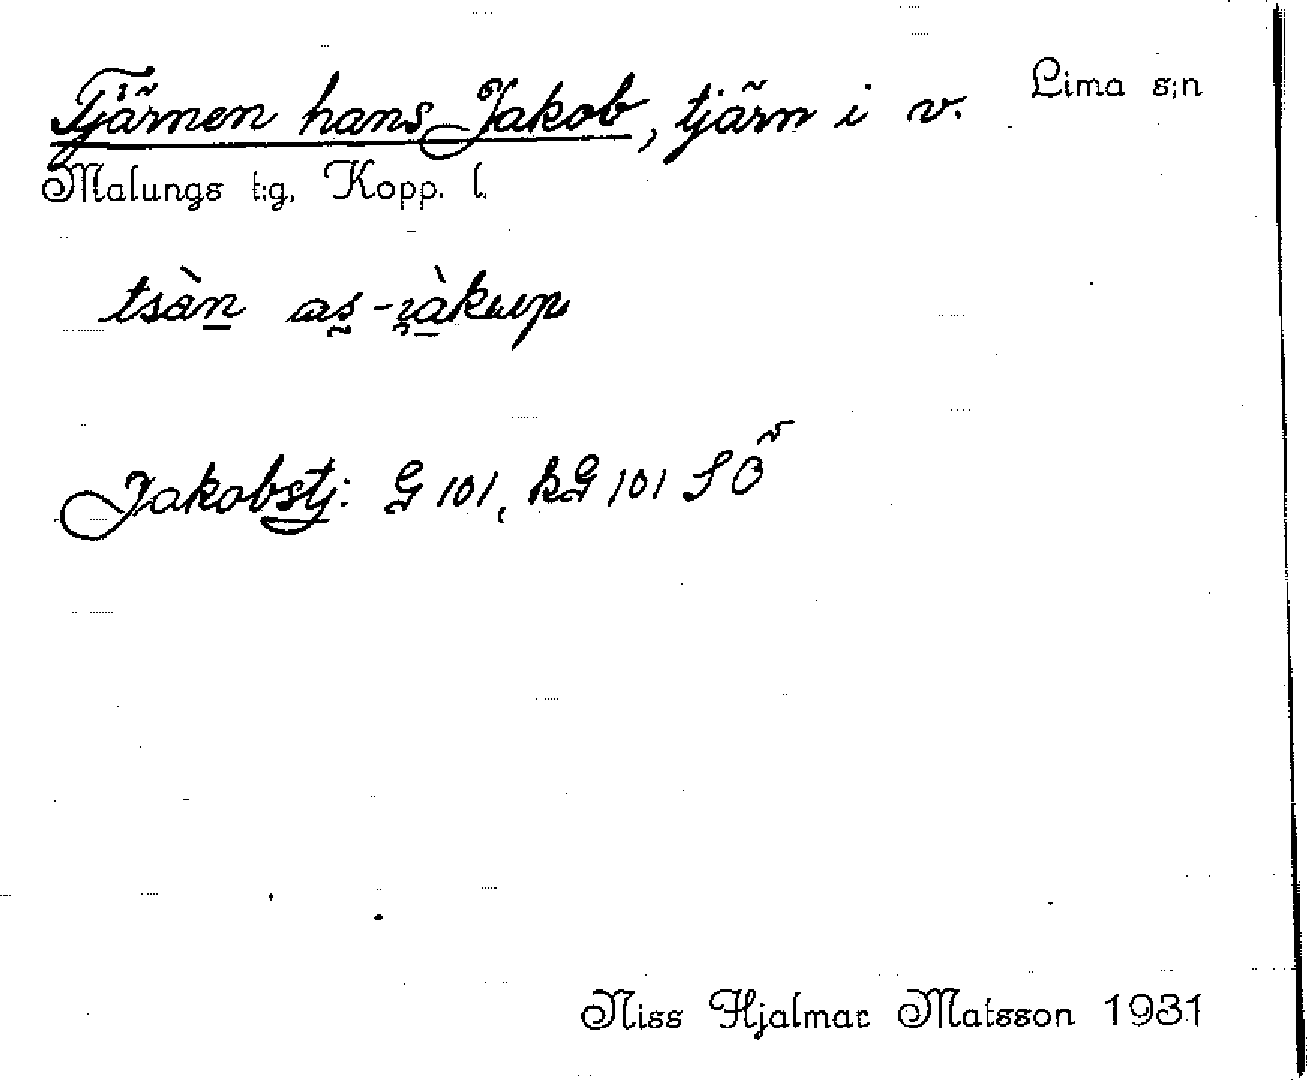 Tjärnen hans Jakob, tjärn i v. Lima s:n
Malungs t:g, Kopp. l.
tsàn as-jàkup
Jakobstj: G 101, kG 101 SÖ
Niss Hjalmar Matsson 1931